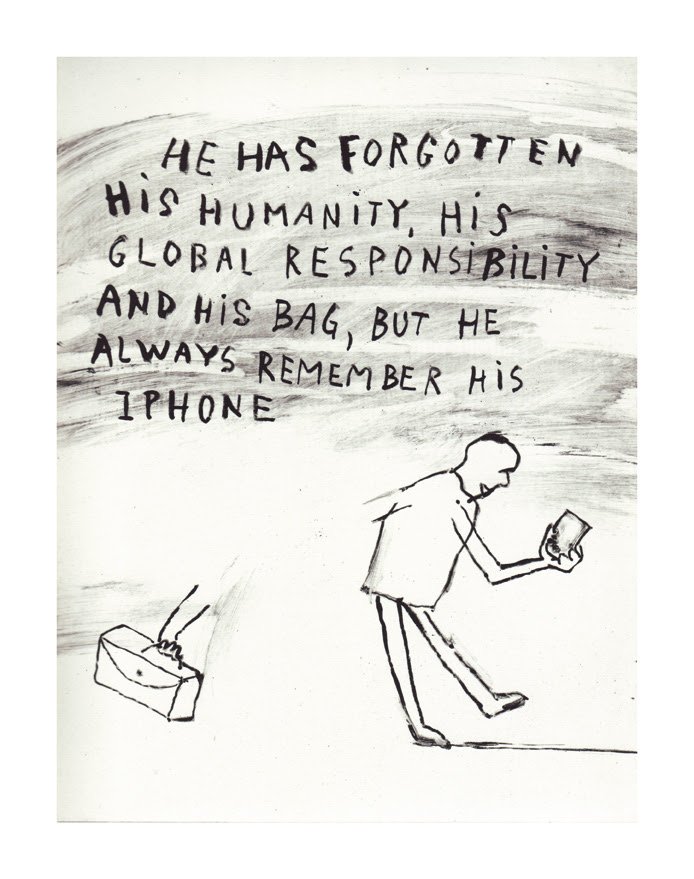 HE HAS FORGOTTEN
HiS HUMANiTY, HiS
GLOBAL RESPONSiBiLiTY
AND HiS BAG, BUT HE
ALWAYS REMEMBER HiS
IPHONE